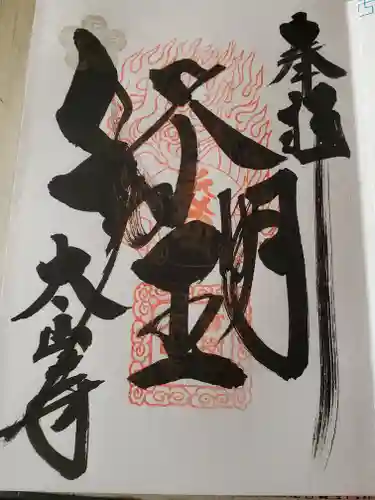 奉拝
不動明王
大山寺